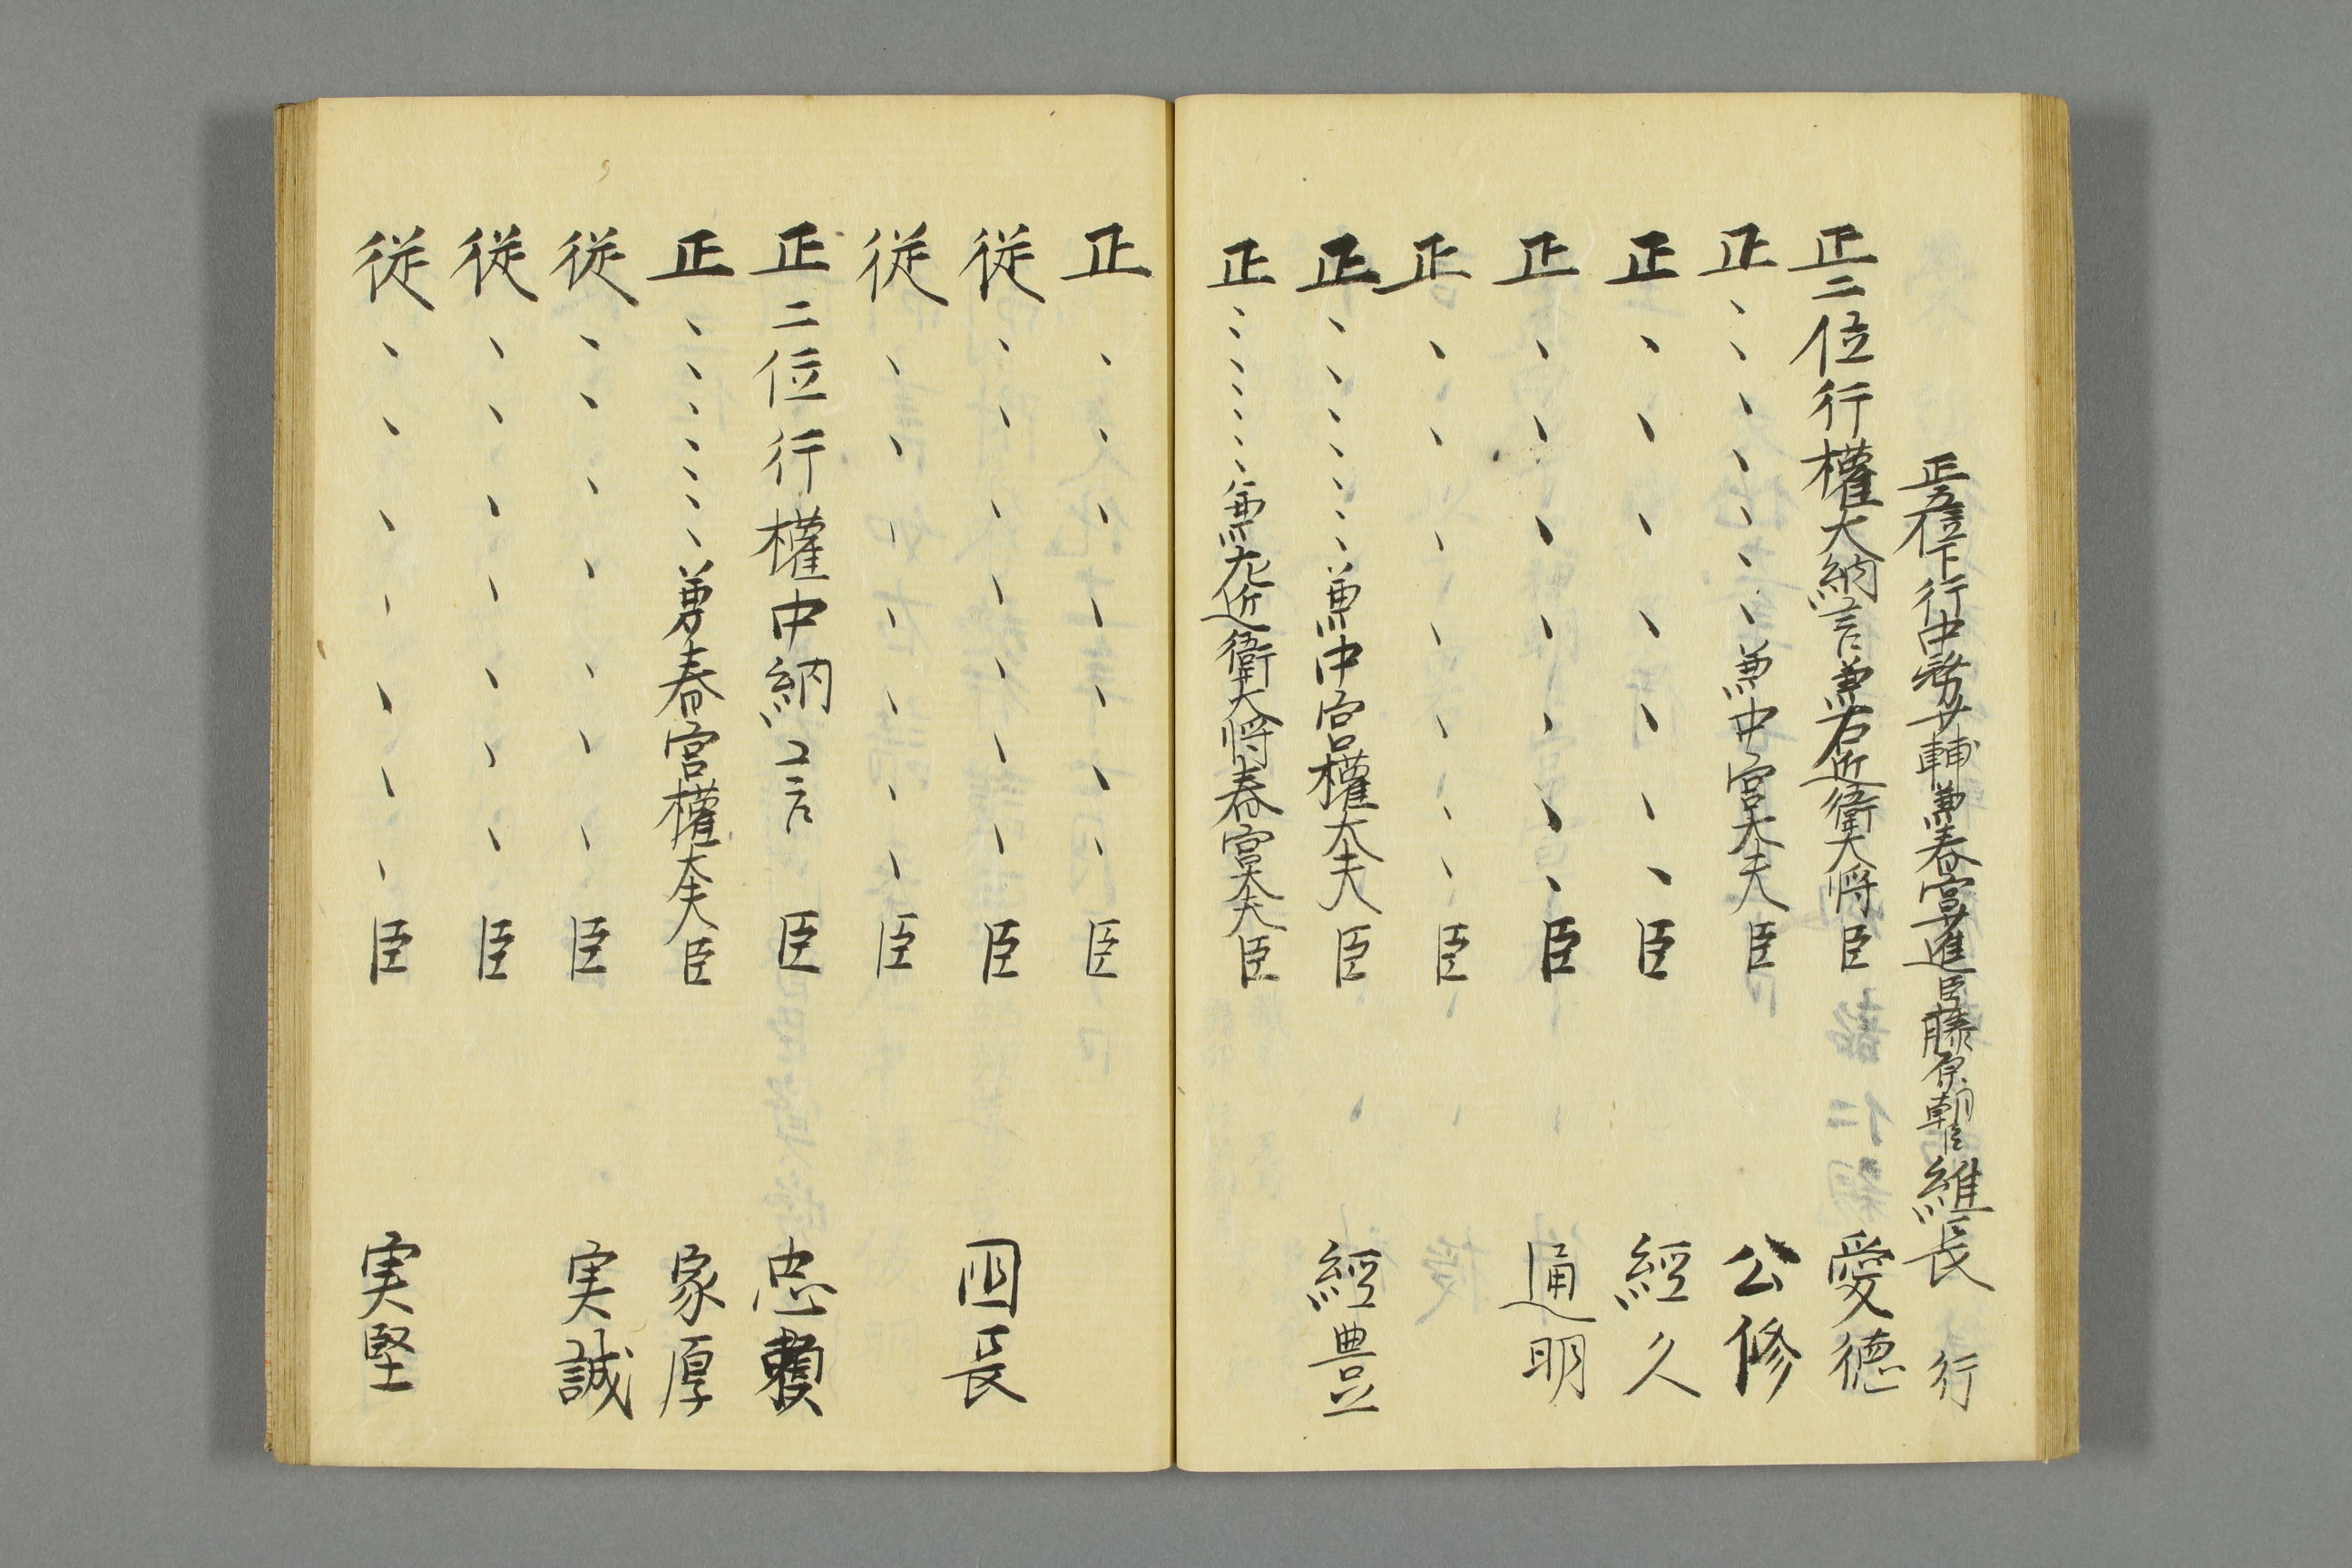 正五位下行中務少輔兼春宮少進臣藤原朝臣維長行
正二位行權大納言兼右近衛大将臣愛徳
正、、、、、、、兼中宮大夫臣公修
正、、、、、、、臣經久
正、、、、、、、臣通明
正、、、、、、、臣
正、、、、、、兼中宮權大夫臣經豊
正、、、、、、、兼左近衛大将春宮大夫臣
正、、、、、、、臣
従、、、、、、、臣
従、、、、、、、臣
正二位行權中納言臣忠頼
正、、、、、、兼春宮權大夫臣家厚
従、、、、、、、臣実誠
従、、、、、、、臣
従、、、、、、、臣実堅